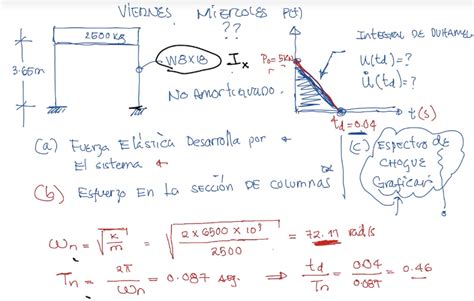 VIERNES MIERCOLES P(t)
??
2500 kg
3.65m
W8x18 Ix
NO AMORTIGUADO.
P₀ = 5kN
INTEGRAL DE DUHAMEL
u(td) = ?
u̇(td) = ?
td = 0.04
t(s)
(a) FUERZA ELÁSTICA DESARROLLA POR
EL SISTEMA
(b) ESFUERZO EN LA SECCIÓN DE COLUMNAS
(C) ESPECTRO DE
CHOQUE
GRAFICAR
ωn = √(K/m) = √(2 x 6500 x 10³ / 2500) = 72.11 rad/s
Tn = 2π/ωn = 0.087 seg. ⇒ td/Tn = 0.04/0.087 = 0.46